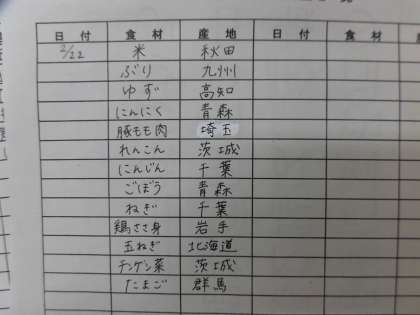 日付 食材 産地 日付 食材
2/22 米 秋田
ぶり 九州
ゆず 高知
にんにく 青森
豚もも肉 埼玉
れんこん 茨城
にんじん 千葉
ごぼう 青森
ねぎ 千葉
鶏ささ身 岩手
玉ねぎ 北海道
チンゲン菜 茨城
たまご 群馬